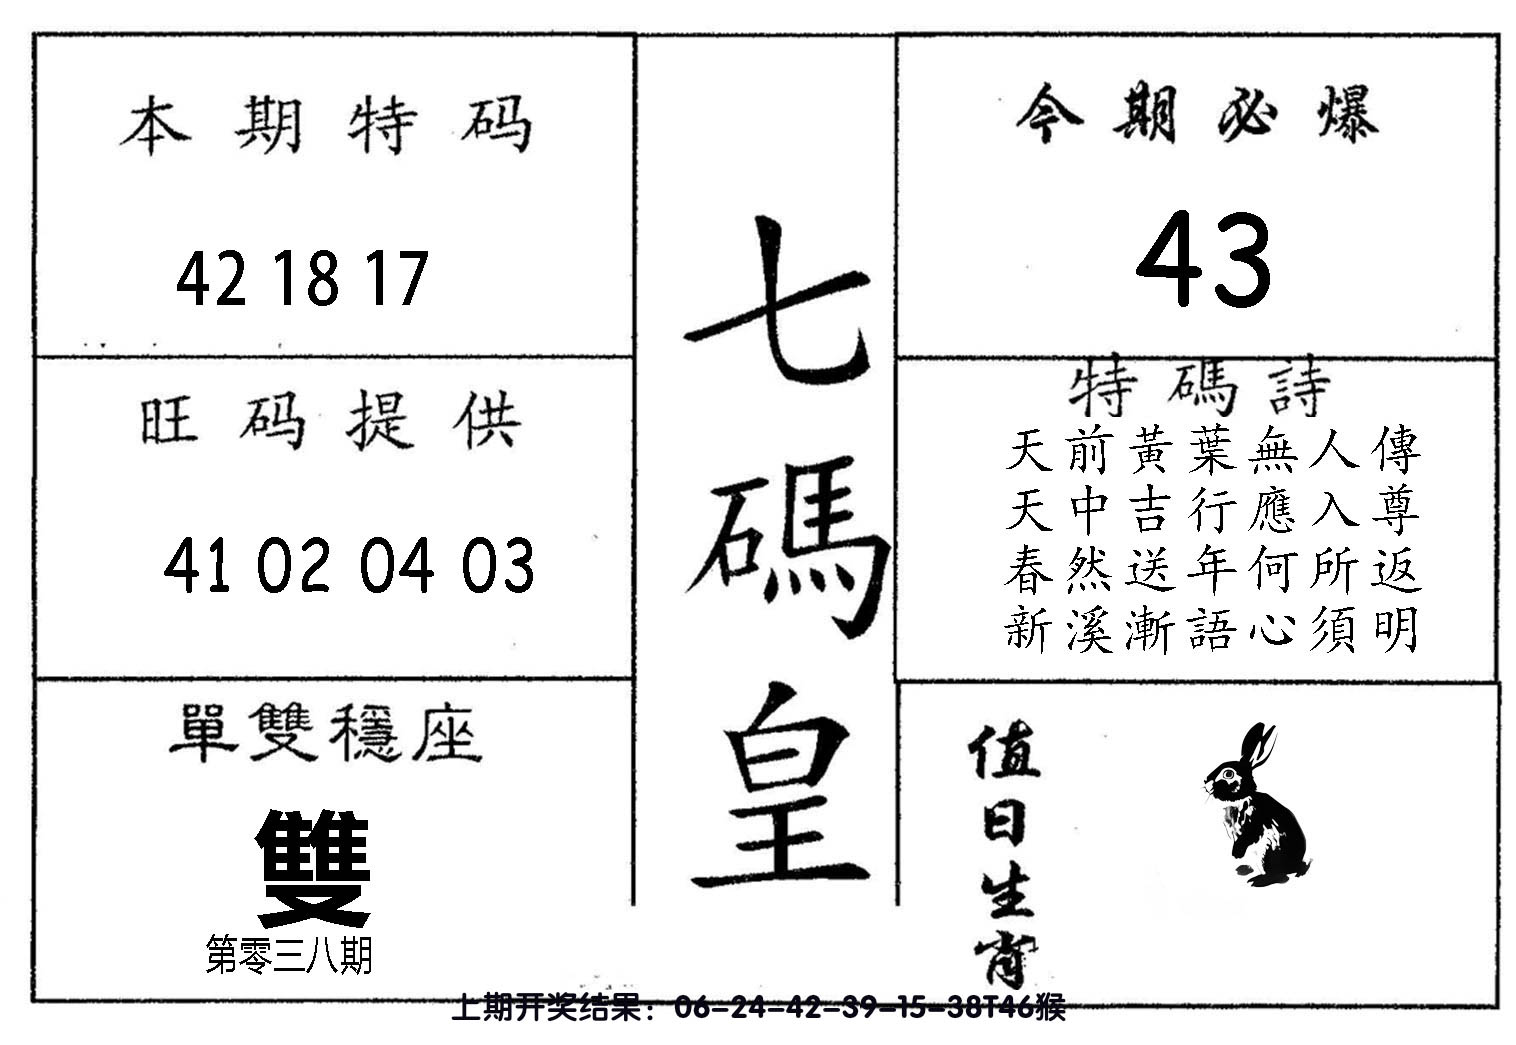 本期特码
42 18 17
旺码提供
41 02 04 03
單雙穩座
雙
第零三八期
七碼皇
今期必爆
43
特碼詩
天前黃葉無人傳
天中吉行應入尊
春然送年何所返
新溪漸語心須明
值日生肖
上期开奖结果：06-24-42-39-15-38T46猴